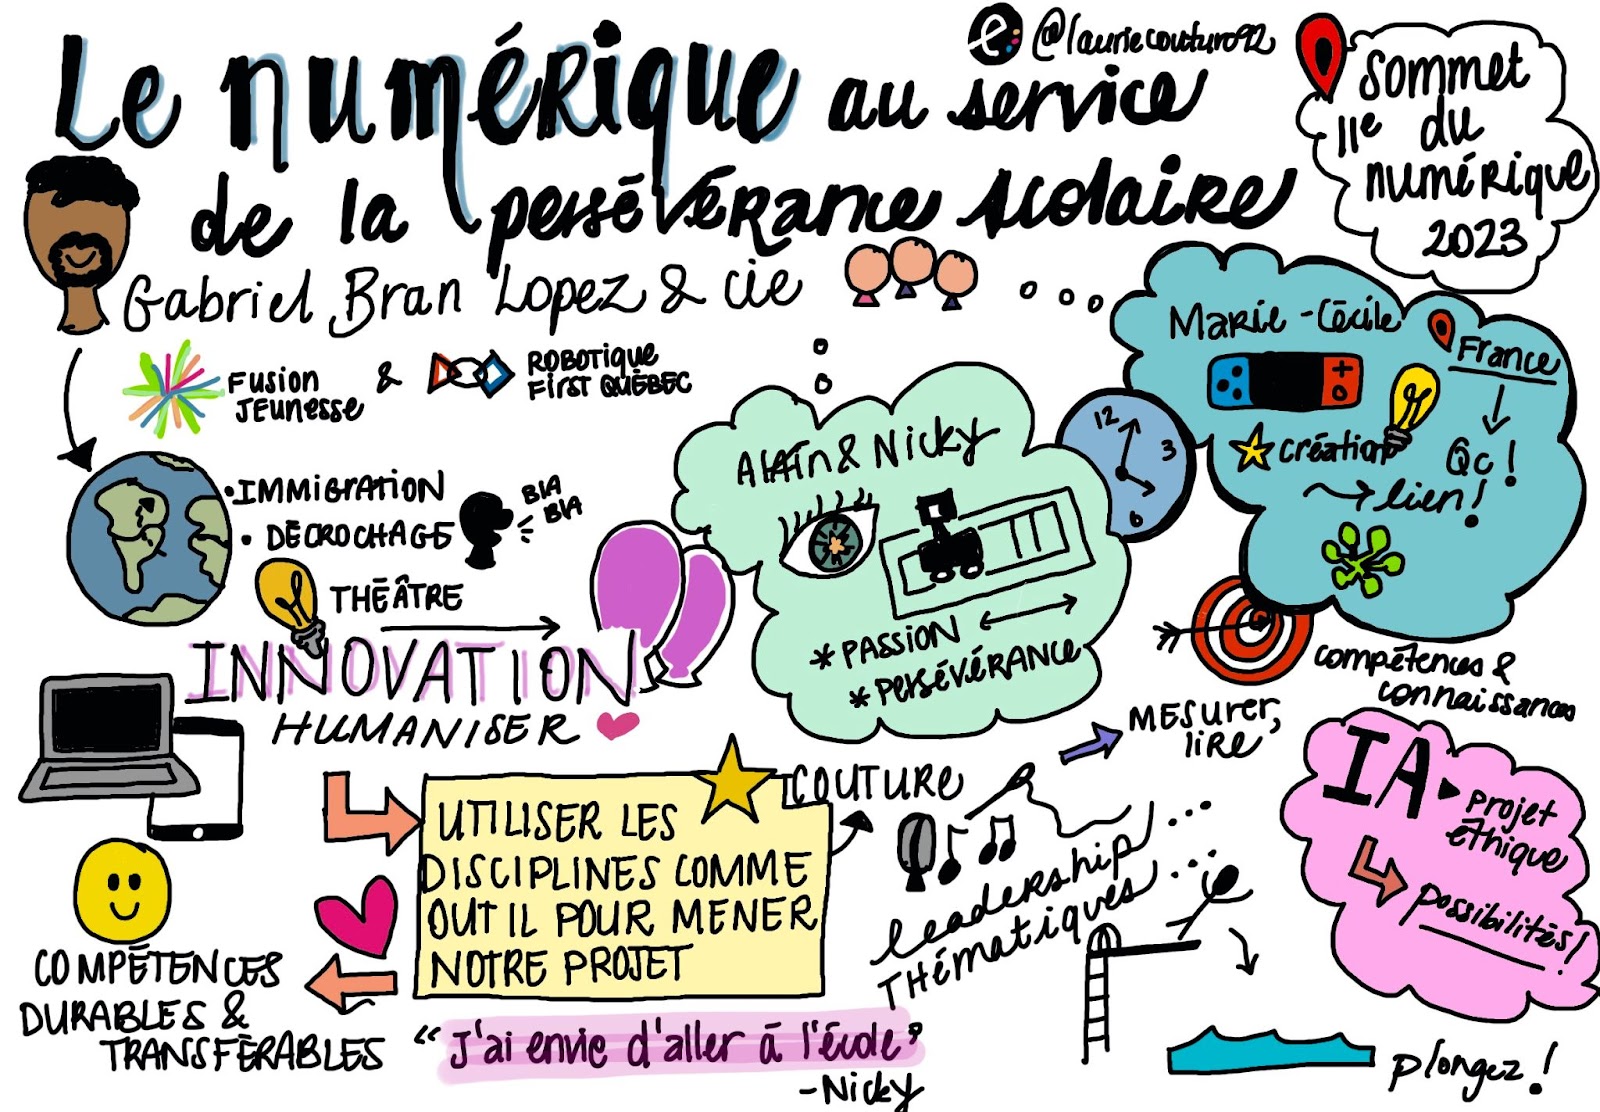 @lauriecouturo92
Le numérique au service
de la persévérance scolaire
Sommet
11e du
numérique
2023
Gabriel Bran Lopez & cie
Fusion
Jeunesse
&
Robotique
First Québec
• Immigration
• Décrochage
Bla
Bla
Théâtre
INNOVATION
HUMANISER
Alain & Nicky
* Passion
* Persévérance
12
3
6
Marie-Cécile
France
Qc!
création
lien!
compétences &
connaissances
Mesurer,
lire
COUTURE
UTILISER LES
DISCIPLINES COMME
OUTIL POUR MENER
NOTRE PROJET
Leadership...
Thématiques...
IA
projet
éthique
possibilités!
COMPÉTENCES
DURABLES &
TRANSFÉRABLES
"J'ai envie d'aller à l'école"
-Nicky
plongez!